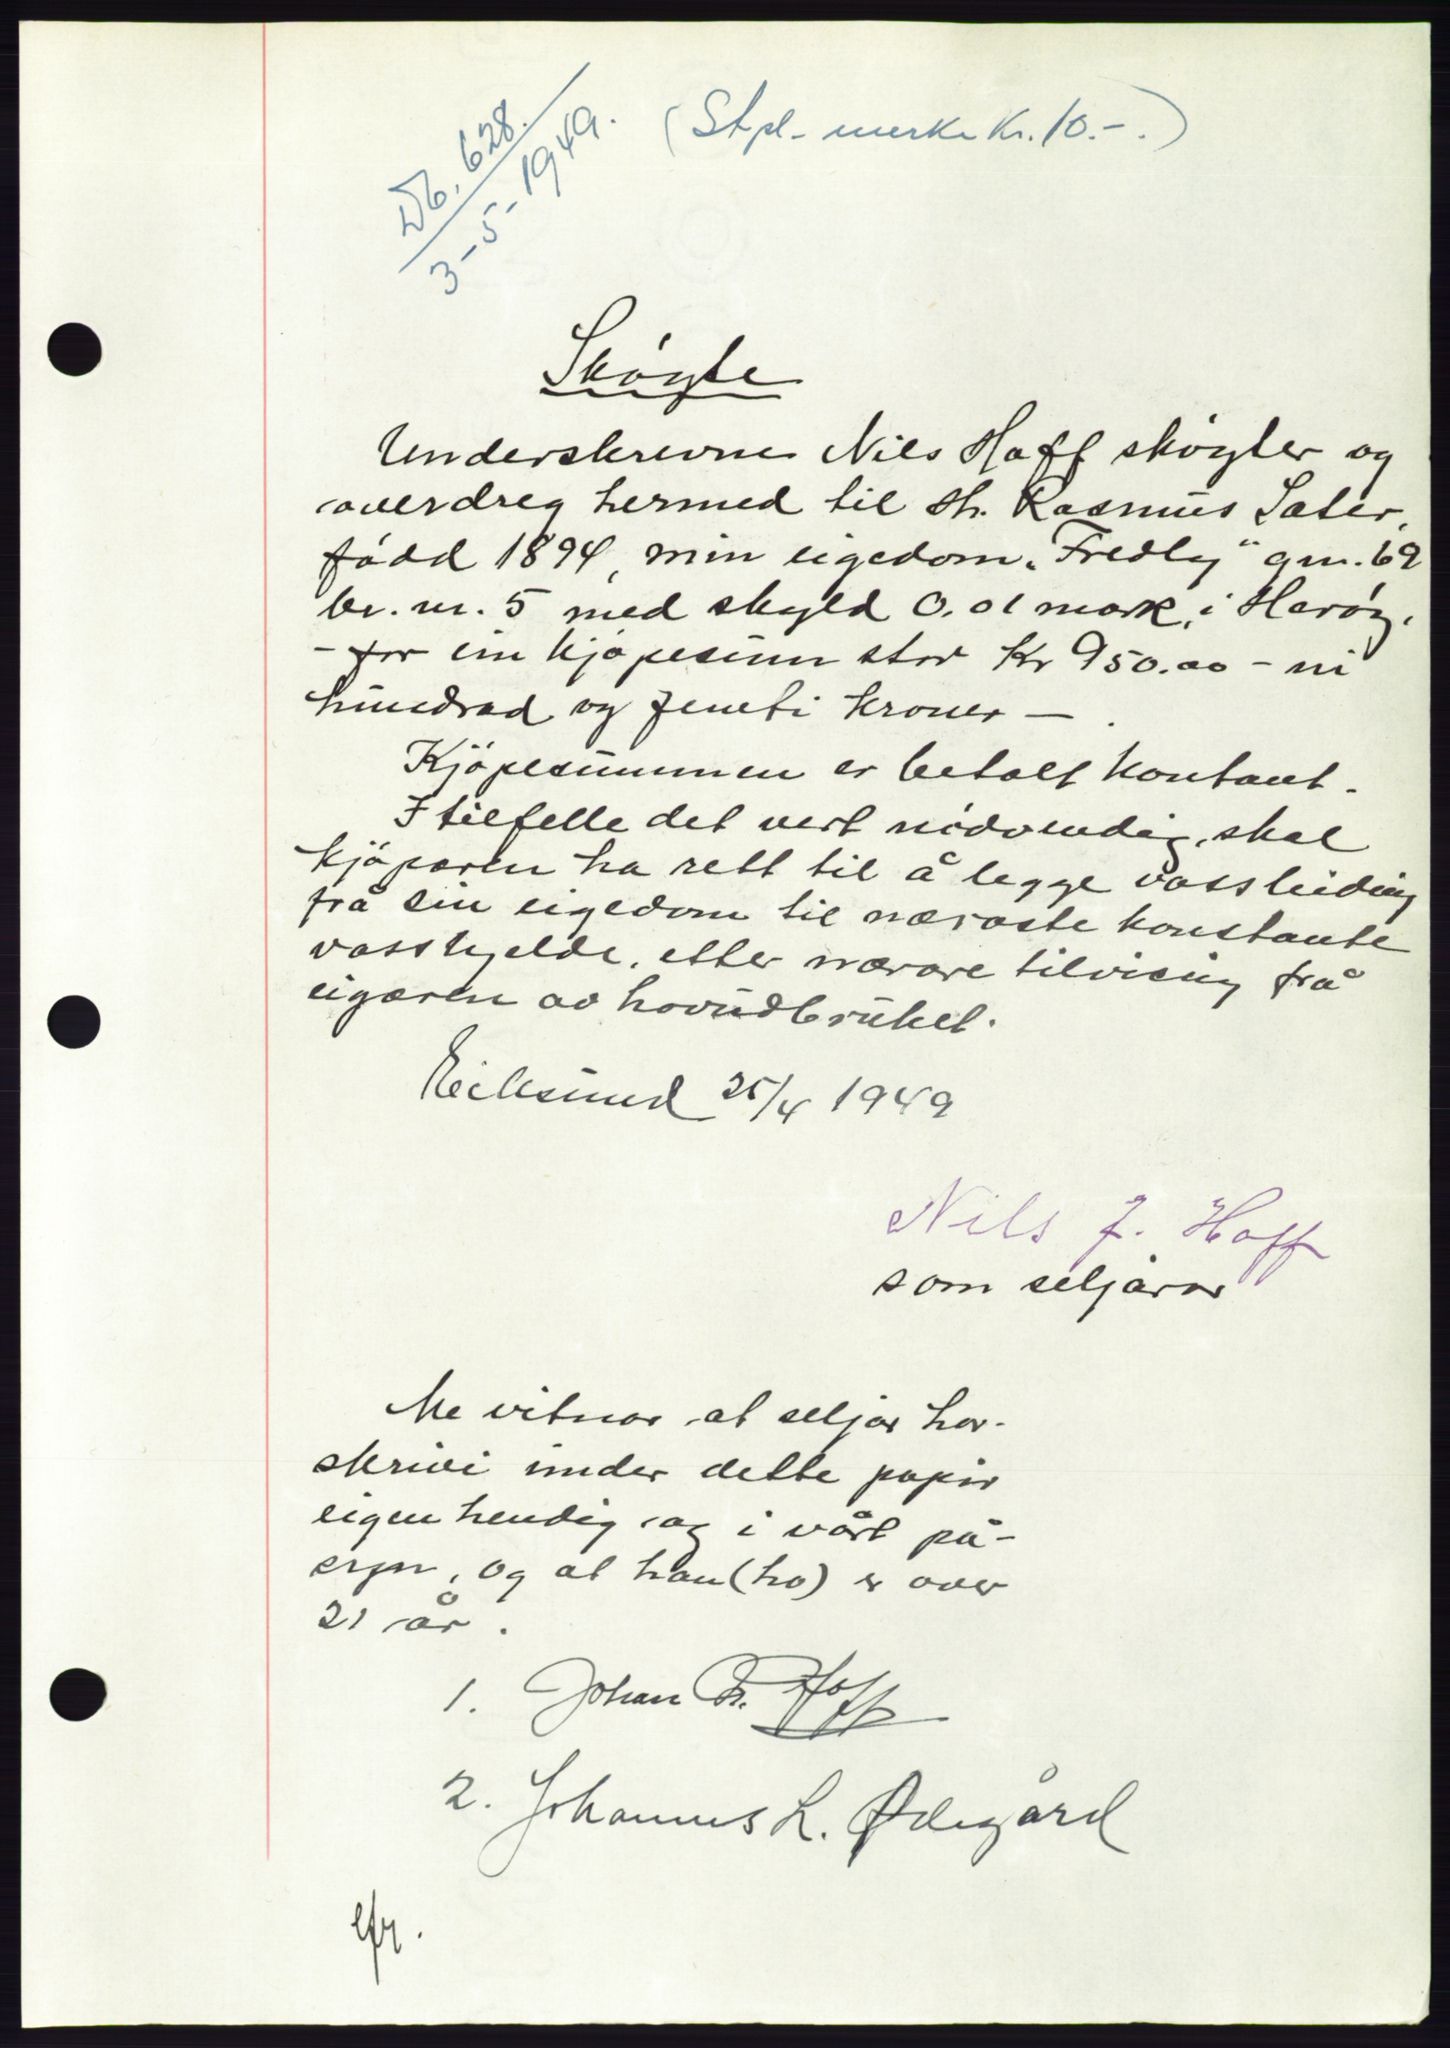 Db. 628.
3-5-1949.
(Stpl-merke kr. 10.-.)
Skøyte
Underskrevne Nils Hoff skøyter og
overdreg hermed til hr. Rasmus Sæter,
fødd 1894, min eigedom „Fredly“ gnr. 69
br. nr. 5 med skyld 0.01 mark, i Herøy,
- for ein kjøpesum stor Kr 950.00 - ni
hundrad og femti kroner - .
Kjøpesummen er betalt kontant.
I tilfelle det vert nødvendig, skal
kjøparen ha rett til å legge vassleiding
frå sin eigedom til næraste konstante
vasskjelde, etter nærare tilvising frå
eigaren av hovudbruket.
Eiksund 25/4 1949
Nils J. Hoff
som seljarar
Me vitnar at seljar har
skrive under dette papir
eigenhendig og i vårt på-
syn, og at han (ho) er over
21 år.
1. Johan Hoff
2. Johannes L. Ødegård